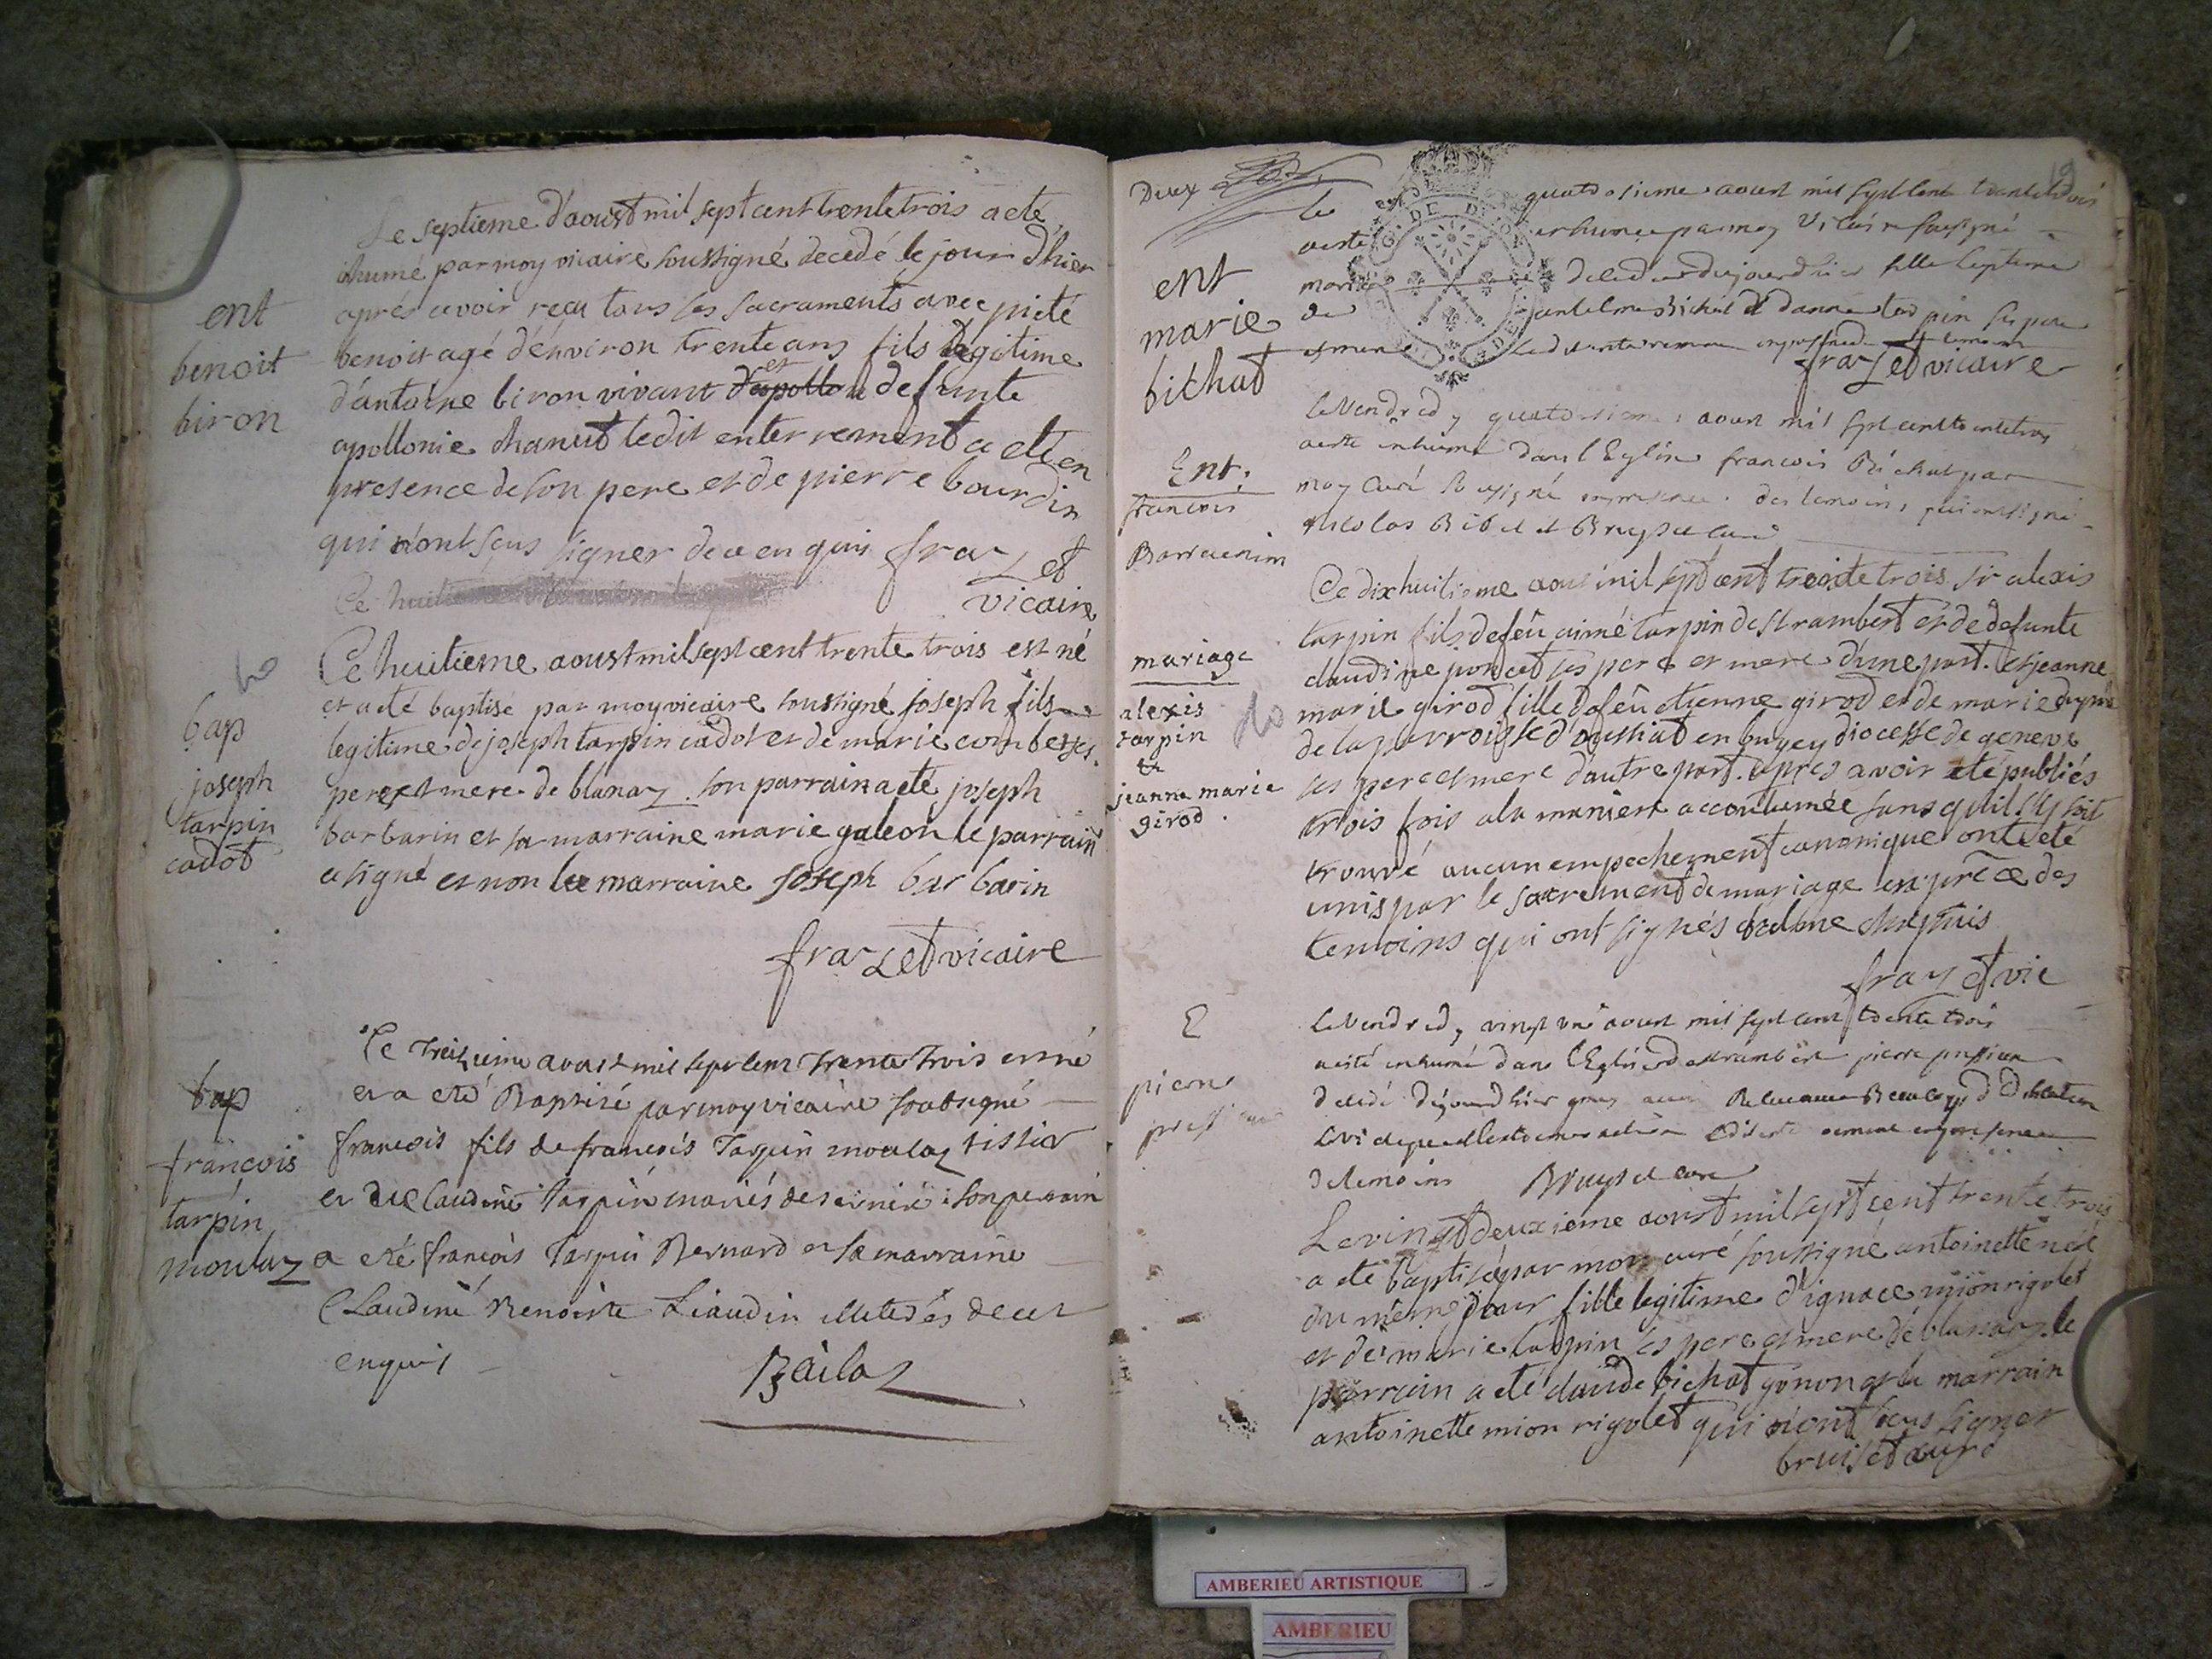 ent
benoit
biron
Le septieme d'aoust mil sept cent trente trois a eté
ihumé par moy vicaire soussigné decedé le jour d'hier
apres avoir reçu tous ses sacraments avec pieté
benoit agé d'environ trente ans fils legitime
d'antoine biron vivant et defunte
apollonie chanut ledit enterrement a eté en
presence de son pere et de pierre bourdin
qui n'ont seus signer de ce enquis frazet
vicaire
Ce huit
bap
joseph
tarpin
cadot
Ce huitieme aoust mil sept cent trente trois est né
et a eté baptise par moy vicaire soussigné joseph fils
legitime de joseph tarpin cadot et de marie combettes
pere et mere de blanaz son parrain a eté joseph
barbarin et sa marraine marie galeon le parrain
a signé et non la marraine joseph barbarin
frazet vicaire
bap
françois
tarpin
moulaz
Ce treizieme aoust mil sept cent trente trois est né
et a eté Baptisé par moy vicaire soubsigné
françois fils de françois Tarpin moulaz tissier
et de claudine tarpin mariés de son parrain
a eté françois Tarpin Bernard et sa marraine
Claudine Benoite Liaudin illiterés de ce
enquis
Bailaz
Deux
19
ent
marie
bichat
le quatorsieme aoust mil sept cent trente trois
a esté inhumee par moy vicaire soussigné
marie decedée du jourd'hier fille
de antelme Bichat et d'anne tarpin ses pere
et mere ledit enterrement en presence de temoins
frazet vicaire
Ent.
francois
Barraenim
le vendredy quatorsieme aoust mil sept cent trente trois
a esté inhumé dans l'Eglise francois par
moy Curé soussigné en presence des temoins qui ont signé
nicolas Bibet et Bruyset curé
mariage
alexis
tarpin
et
jeanne marie
girod
Ce dixhuitieme aoust mil sept cent trente trois sr alexis
tarpin fils de feû aimé tarpin de st rambert et de defunte
claudine poncet ses pere et mere d'une part. et jeanne
marie girod fille de feû etienne girod et de marie
de la parroisse d'oussiat en bugey diocesse de geneve
ses pere et mere d'autre part. apres avoir eté publiés
trois fois a la maniere accoutumée sans qu'il s'y soit
trouvé aucun empechement canonique ont eté
unis par le sacrement de mariage en pnce des
temoins qui ont signés
frazet vic
E
pierre
le vendredy vingt un aoust mil sept cent trente trois
a esté inhumé dans l'Eglise de st rambert pierre
decedé du jourd'hier
de temoins Bruyset curé
Le vingt deuxieme aoust mil sept cent trente trois
a eté baptisé par moy curé soussigné antoinette neé
du meme jour fille legitime d'ignace mion rigolet
et de marie tarpin ses pere et mere de blanaz le
parrain a eté claude bichat gonon et la marrain
antoinette mion rigolet qui n'ont seus signer
bruiset curé
AMBERIEU ARTISTIQUE
AMBERIEU